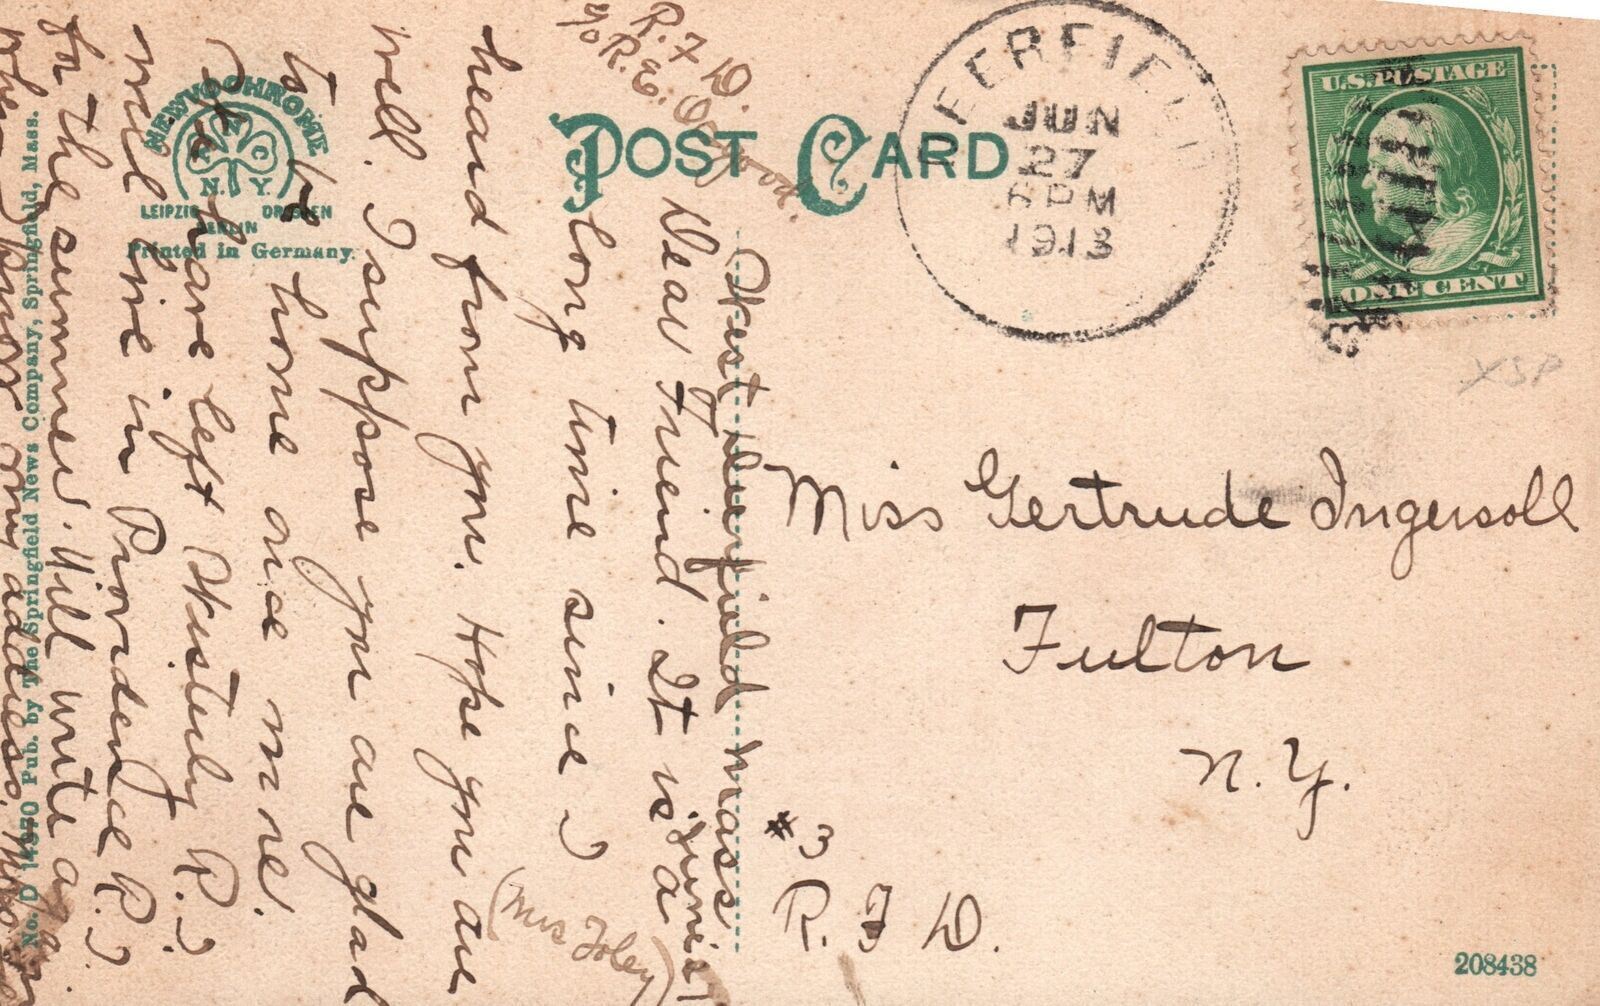 R. F. D.
℅ R. E.
West Deerfield Mass.
Dear Friend. It is a
long time since I
heard from you. Hope you are
well. I suppose you are glad
to be home once more.
I have left R. I
will live in Providence R. I.
for the summer. Will write
when I know my address.
(Mrs Foley)
NEWVOCHROME
A N N C
N. Y.
LEIPZIG DRESDEN
BERLIN
Printed in Germany.
No. D 14970 Pub. by The Springfield News Company, Springfield, Mass.
POST CARD
DEERFIELD
JUN
27
6 PM
1913
U.S. POSTAGE
ONE CENT
XSP
Miss Gertrude Ingersoll
Fulton
N. Y.
#3
R. F. D.
208438